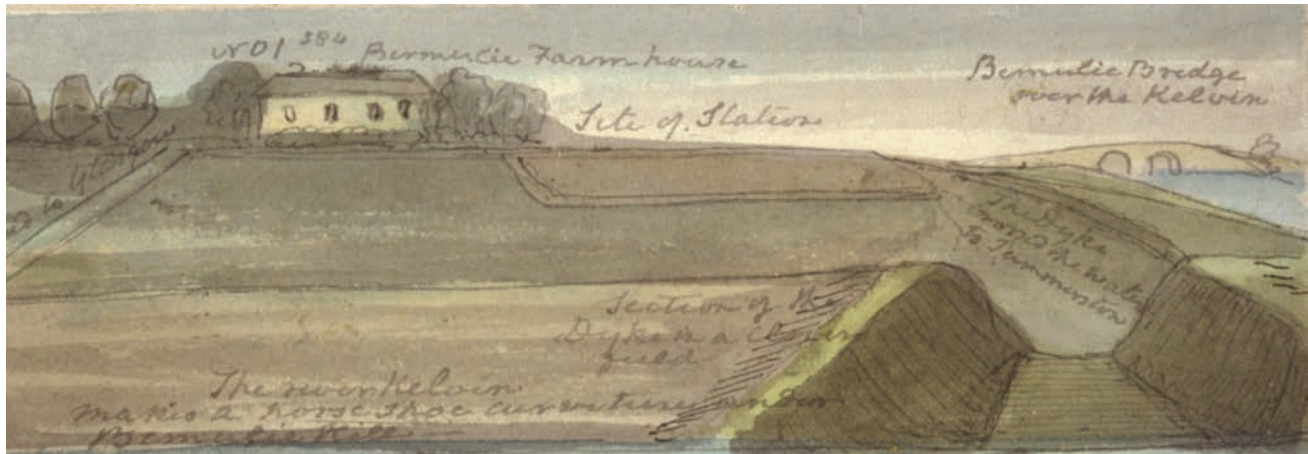 No 1 384 Bermulie Farm house
Bemulie Bridge
over the Kelvin
Site of Station
to Glasgow
The Dyke
across the water
to Summerston
Section of the
Dyke in a Clover
field
The river Kelvin
makes a horse shoe curvature under
Bemulie Hill